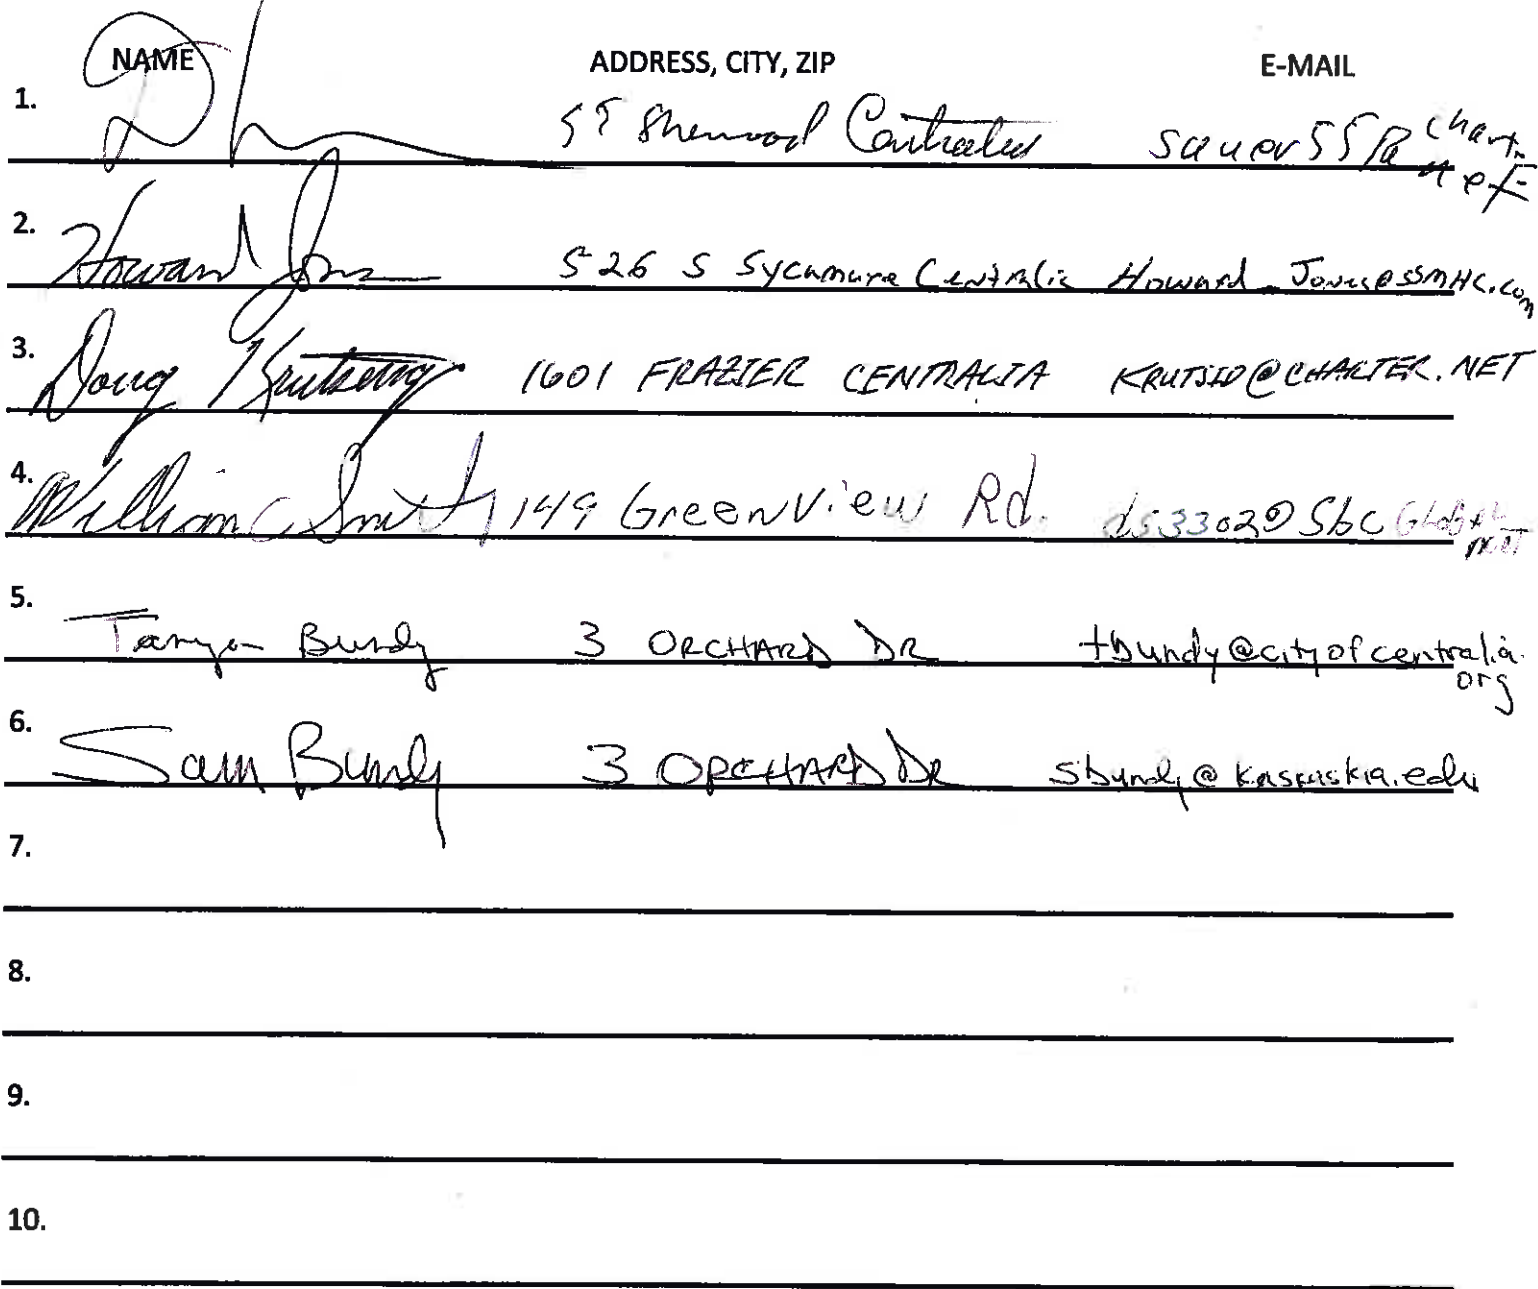 NAME ADDRESS, CITY, ZIP E-MAIL
1. Sherwood Centralia
2. Howard Jones 526 S Sycamore Centralia Howard_Jones@SSMHC.com
3. Doug 1601 FRAZIER CENTRALIA KRUTSID@CHARTER.NET
4. William C Smith 149 Greenview Rd. ds33020@Sbc Global
net
5. Tanya Bundy 3 ORCHARD DR tbundy@cityofcentralia.
org
6. Sam Bundy 3 ORCHARD DR sbundy@kaskaskia.edu
7.
8.
9.
10.